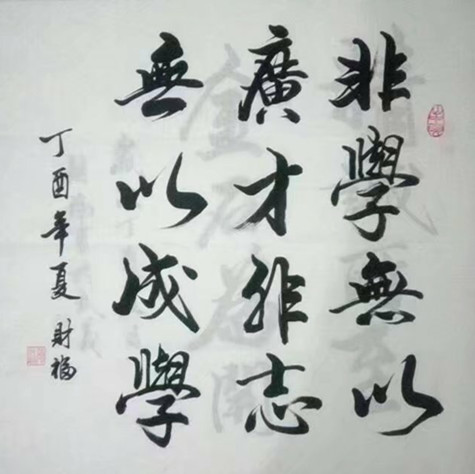 非學無以
廣才非志
無以成學
丁酉年夏 財福